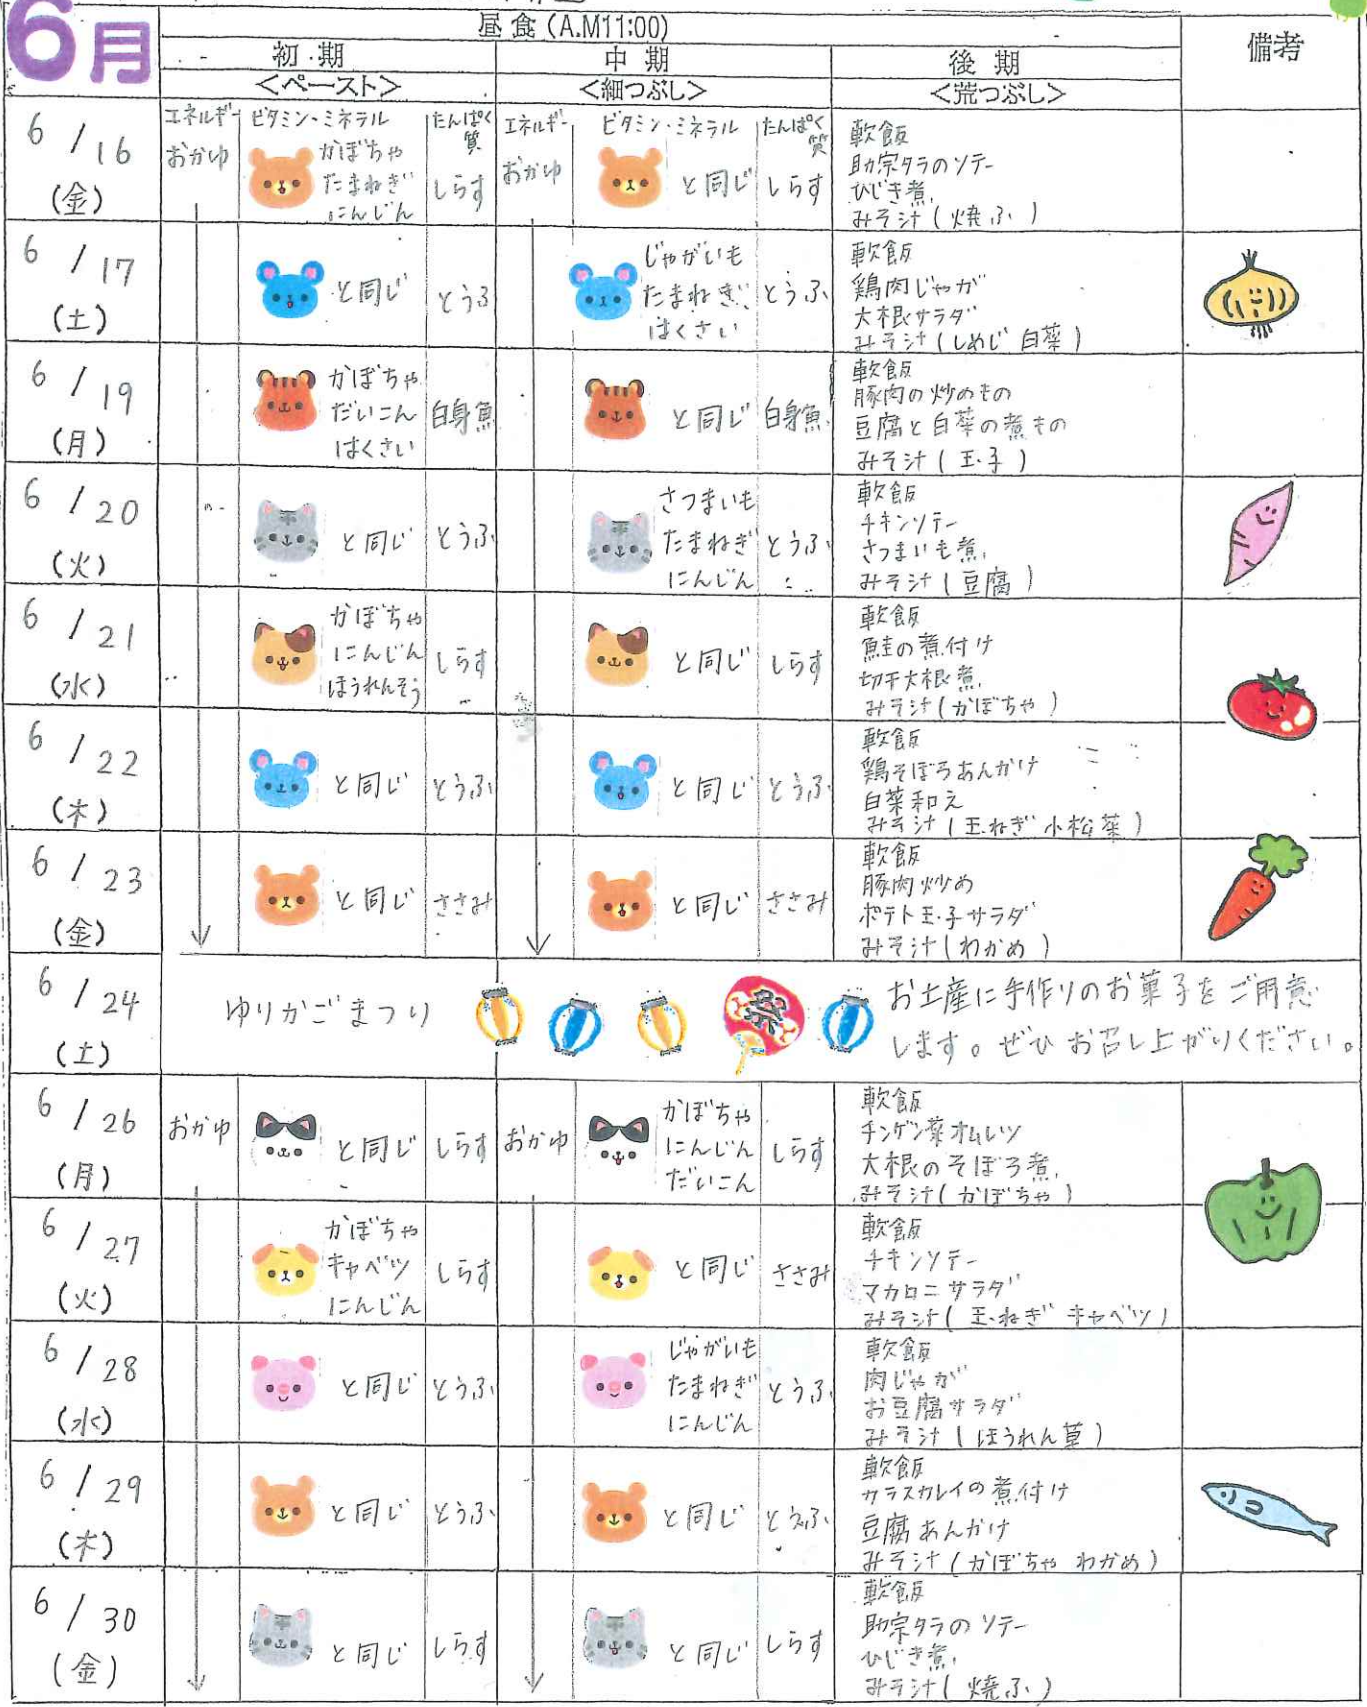 6月
昼食(A.M11:00)
備考
初期
中期
後期
<ペースト>
<細つぶし>
<荒つぶし>
6/16
(金)
エネルギー
おかゆ
ビタミン・ミネラル
かぼちゃ
たまねぎ
にんじん
たんぱく
質
しらす
エネルギー
おかゆ
ビタミン・ミネラル
と同じ
たんぱく
質
しらす
軟飯
助宗タラのソテー
ひじき煮
みそ汁(焼ふ)
6/17
(土)
と同じ
とうふ
じゃがいも
たまねぎ
はくさい
とうふ
軟飯
鶏肉じゃが
大根サラダ
みそ汁(しめじ 白菜)
6/19
(月)
かぼちゃ
だいこん
はくさい
白身魚
と同じ
白身魚
軟飯
豚肉の炒めもの
豆腐と白菜の煮もの
みそ汁(玉子)
6/20
(火)
と同じ
とうふ
さつまいも
たまねぎ
にんじん
とうふ
軟飯
チキンソテー
さつまいも煮
みそ汁(豆腐)
6/21
(水)
かぼちゃ
にんじん
ほうれんそう
しらす
と同じ
しらす
軟飯
鮭の煮付け
切干大根煮
みそ汁(かぼちゃ)
6/22
(木)
と同じ
とうふ
と同じ
とうふ
軟飯
鶏そぼろあんかけ
白菜和え
みそ汁(玉ねぎ 小松菜)
6/23
(金)
と同じ
ささみ
と同じ
ささみ
軟飯
豚肉炒め
ポテト玉子サラダ
みそ汁(わかめ)
6/24
(土)
ゆりかごまつり
祭
お土産に手作りのお菓子をご用意
します。ぜひお召し上がりください。
6/26
(月)
おかゆ
と同じ
しらす
おかゆ
かぼちゃ
にんじん
だいこん
しらす
軟飯
チンゲン菜オムレツ
大根のそぼろ煮
みそ汁(かぼちゃ)
6/27
(火)
かぼちゃ
キャベツ
にんじん
しらす
と同じ
ささみ
軟飯
チキンソテー
マカロニサラダ
みそ汁(玉ねぎ キャベツ)
6/28
(水)
と同じ
とうふ
じゃがいも
たまねぎ
にんじん
とうふ
軟飯
肉じゃが
お豆腐サラダ
みそ汁(ほうれん草)
6/29
(木)
と同じ
とうふ
と同じ
とうふ
軟飯
カラスカレイの煮付け
豆腐あんかけ
みそ汁(かぼちゃ わかめ)
6/30
(金)
と同じ
しらす
と同じ
しらす
軟飯
助宗タラのソテー
ひじき煮
みそ汁(焼ふ)